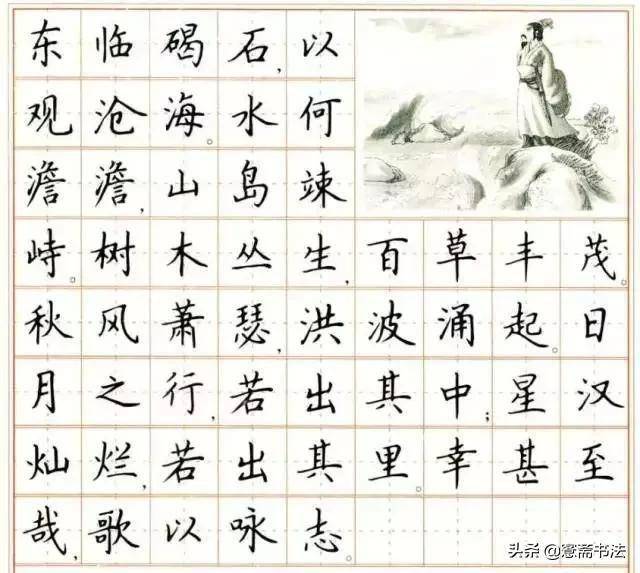 东临碣石,以
观沧海。水何
澹澹,山岛竦
峙。树木丛生,百草丰茂。
秋风萧瑟,洪波涌起。日
月之行,若出其中;星汉
灿烂,若出其里。幸甚至
哉,歌以咏志。
头条@寔斋书法